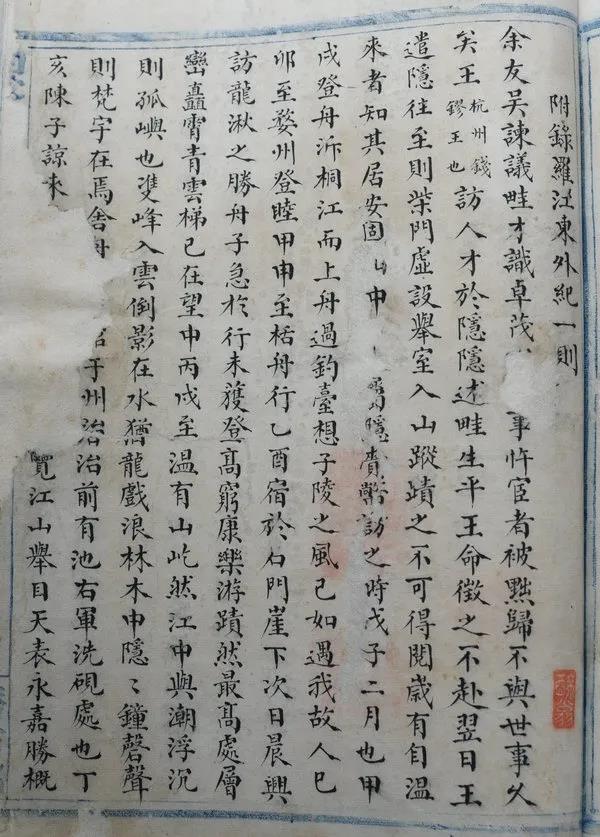 附錄羅江東外紀一則
余友吳諫議畦才識卓茂事忤宦者被黜歸不與世事久
矣王杭州錢鏐王也訪人才於隱隱述畦生平王命徵之不赴翌日王
遣隱往至則柴門虛設舉室入山蹤蹟之不可得閱歲有自温
來者知其居安固中隱賫幣訪之時戊子二月也甲
戌登舟泝桐江而上舟過釣臺想子陵之風已如遇我故人巳
卯至婺州登睦甲申至栝舟行乙酉宿於石門崖下次日晨興
訪龍湫之勝舟子急於行未獲登髙窮康樂游蹟然最髙處層
巒矗霄青雲梯已在望中丙戌至温有山屹然江中與潮浮沉
則孤嶼也雙峰入雲倒影在水猶龍戲浪林木中隱〻鐘磬聲
則梵宇在焉舍舟于州治治前有池右軍洗硯處也丁
亥陳子諒來覽江山舉目天表永嘉勝概